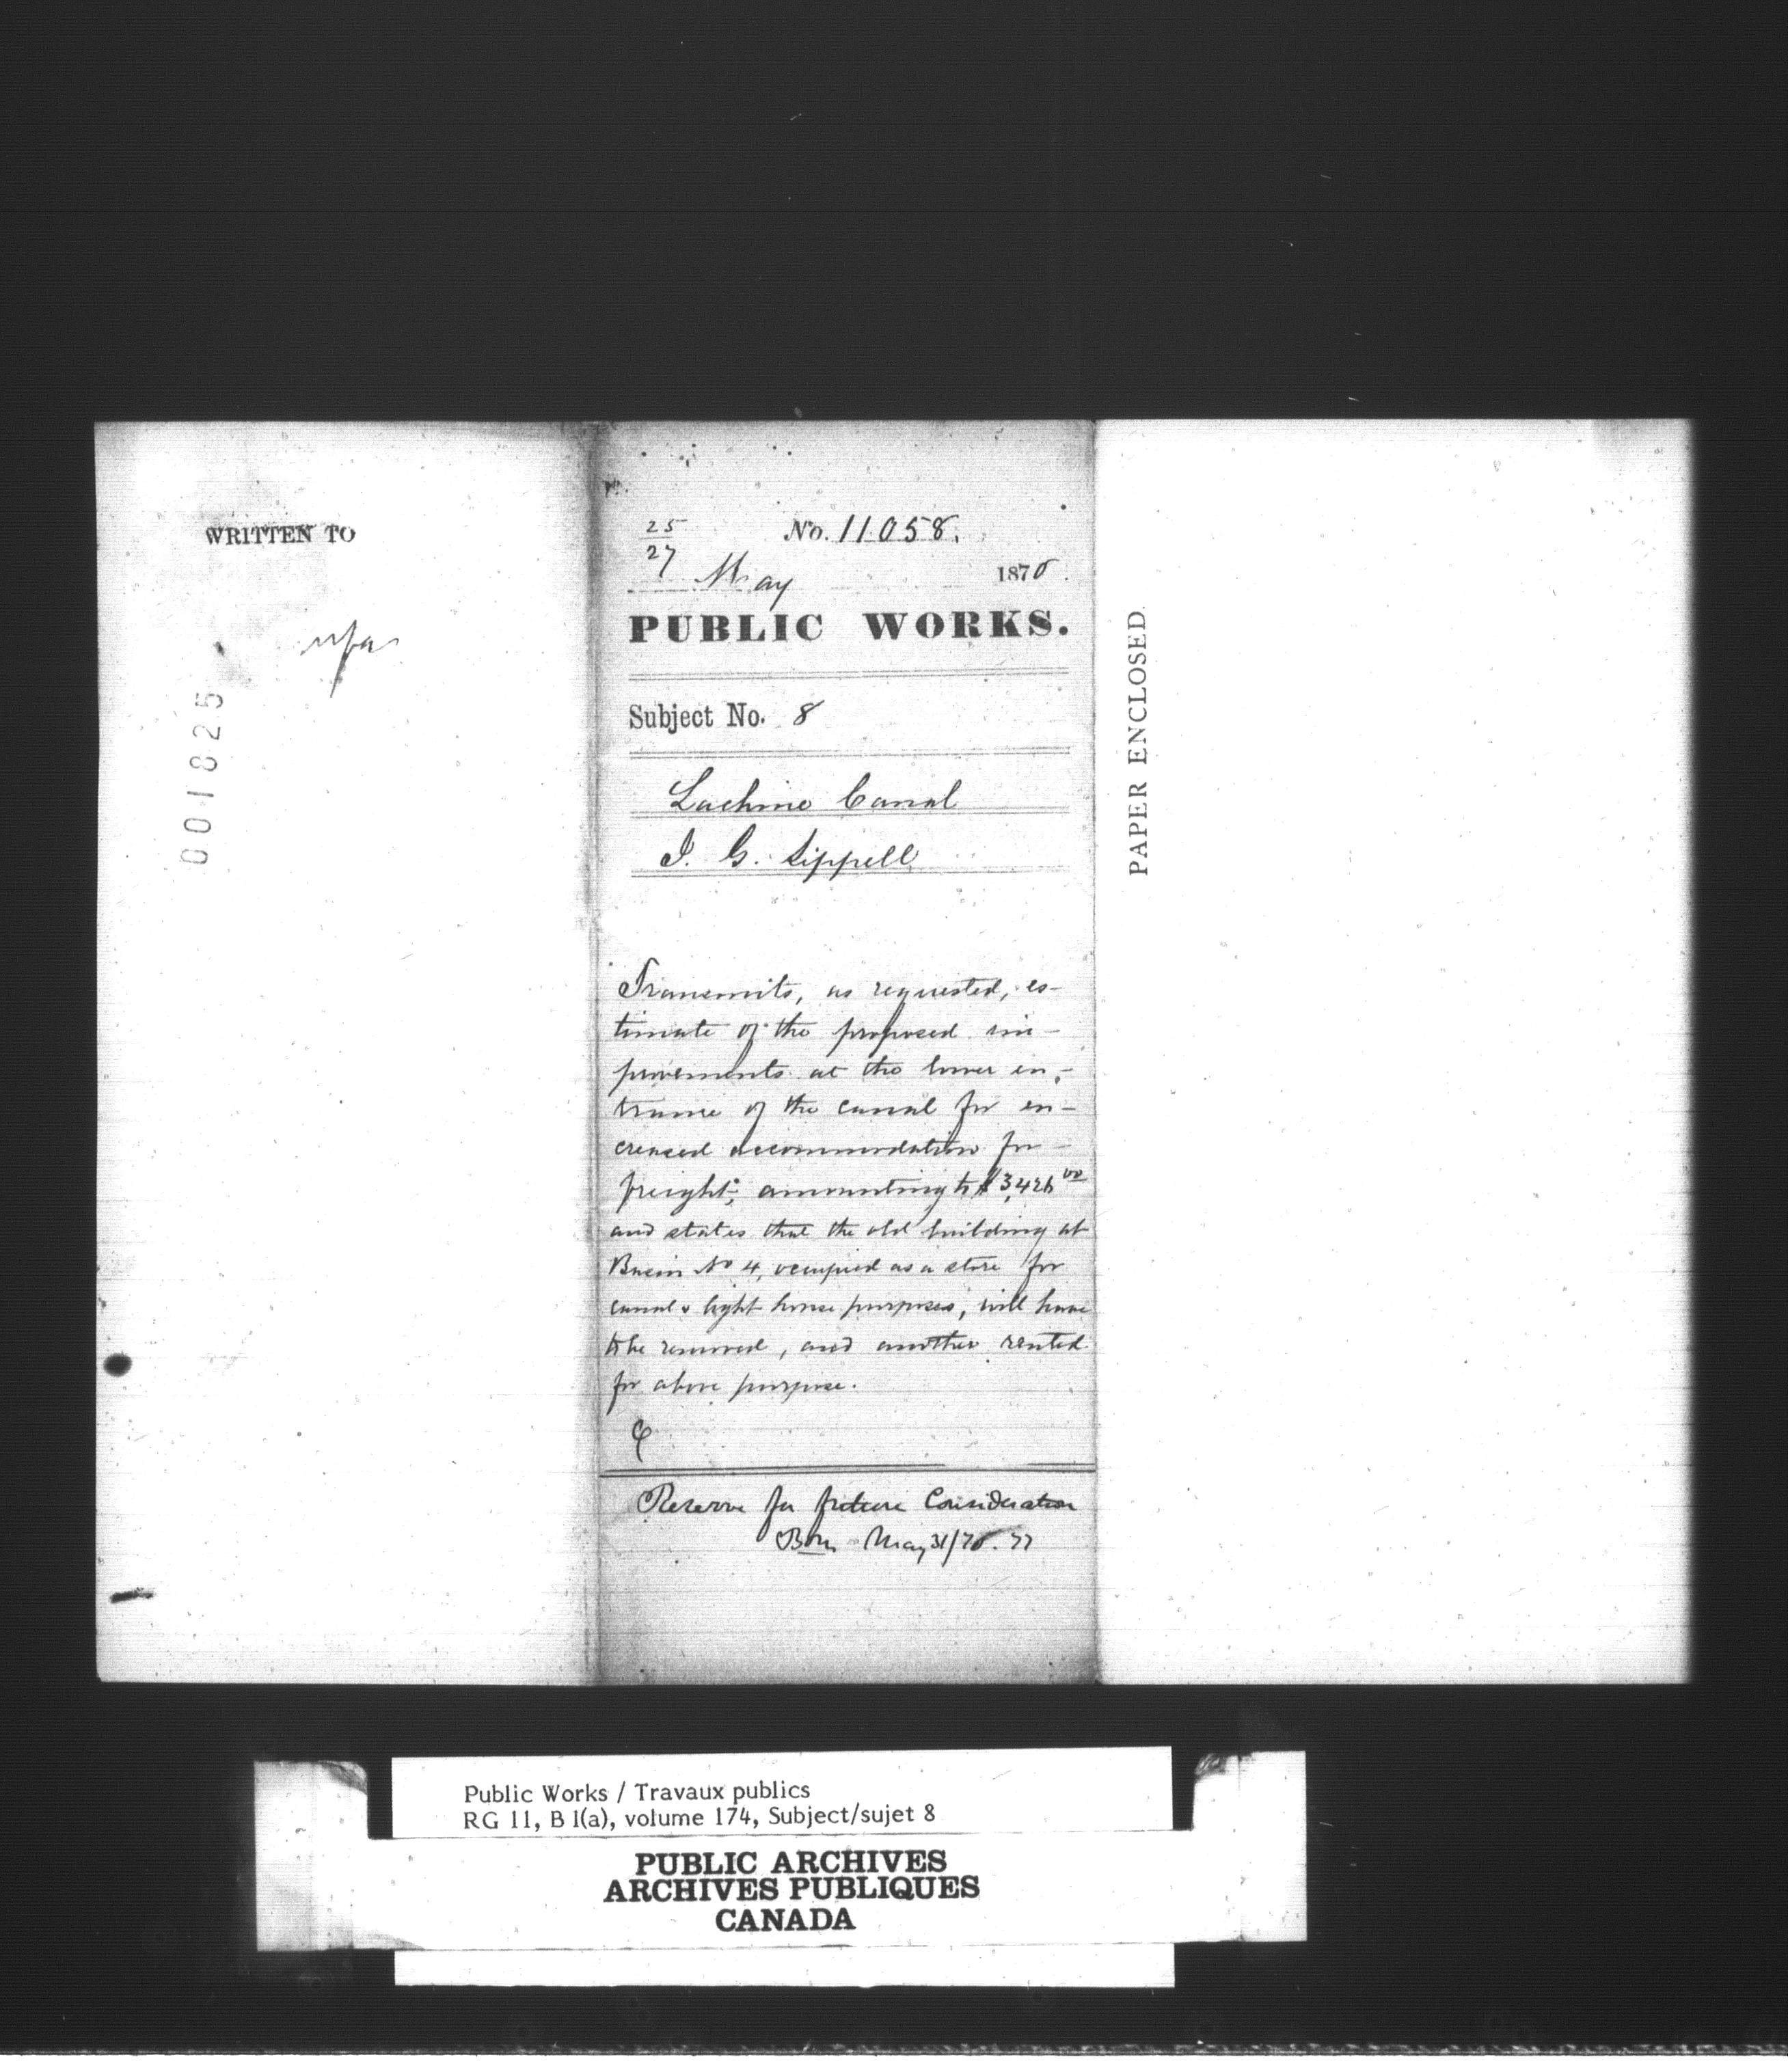 WRITTEN TO
001825
25
27
No. 11058.
May 1870.
PUBLIC WORKS.
Subject No. 8
Lachine Canal
J. G. Sippell
Transmits, as requested, es-
timate of the proposed im-
provements at the lower en-
trance of the canal for in-
creased accommodation for
freight; amounting to $3,426 00
and states that the old building at
Basin No 4, occupied as a store for
canal & light house purposes, will have
to be removed, and another rented
for above purpose.
Reserve for future Consideration
May 31/70.
PAPER ENCLOSED.
Public Works / Travaux publics
RG 11, B 1(a), volume 174, Subject/sujet 8
PUBLIC ARCHIVES
ARCHIVES PUBLIQUES
CANADA